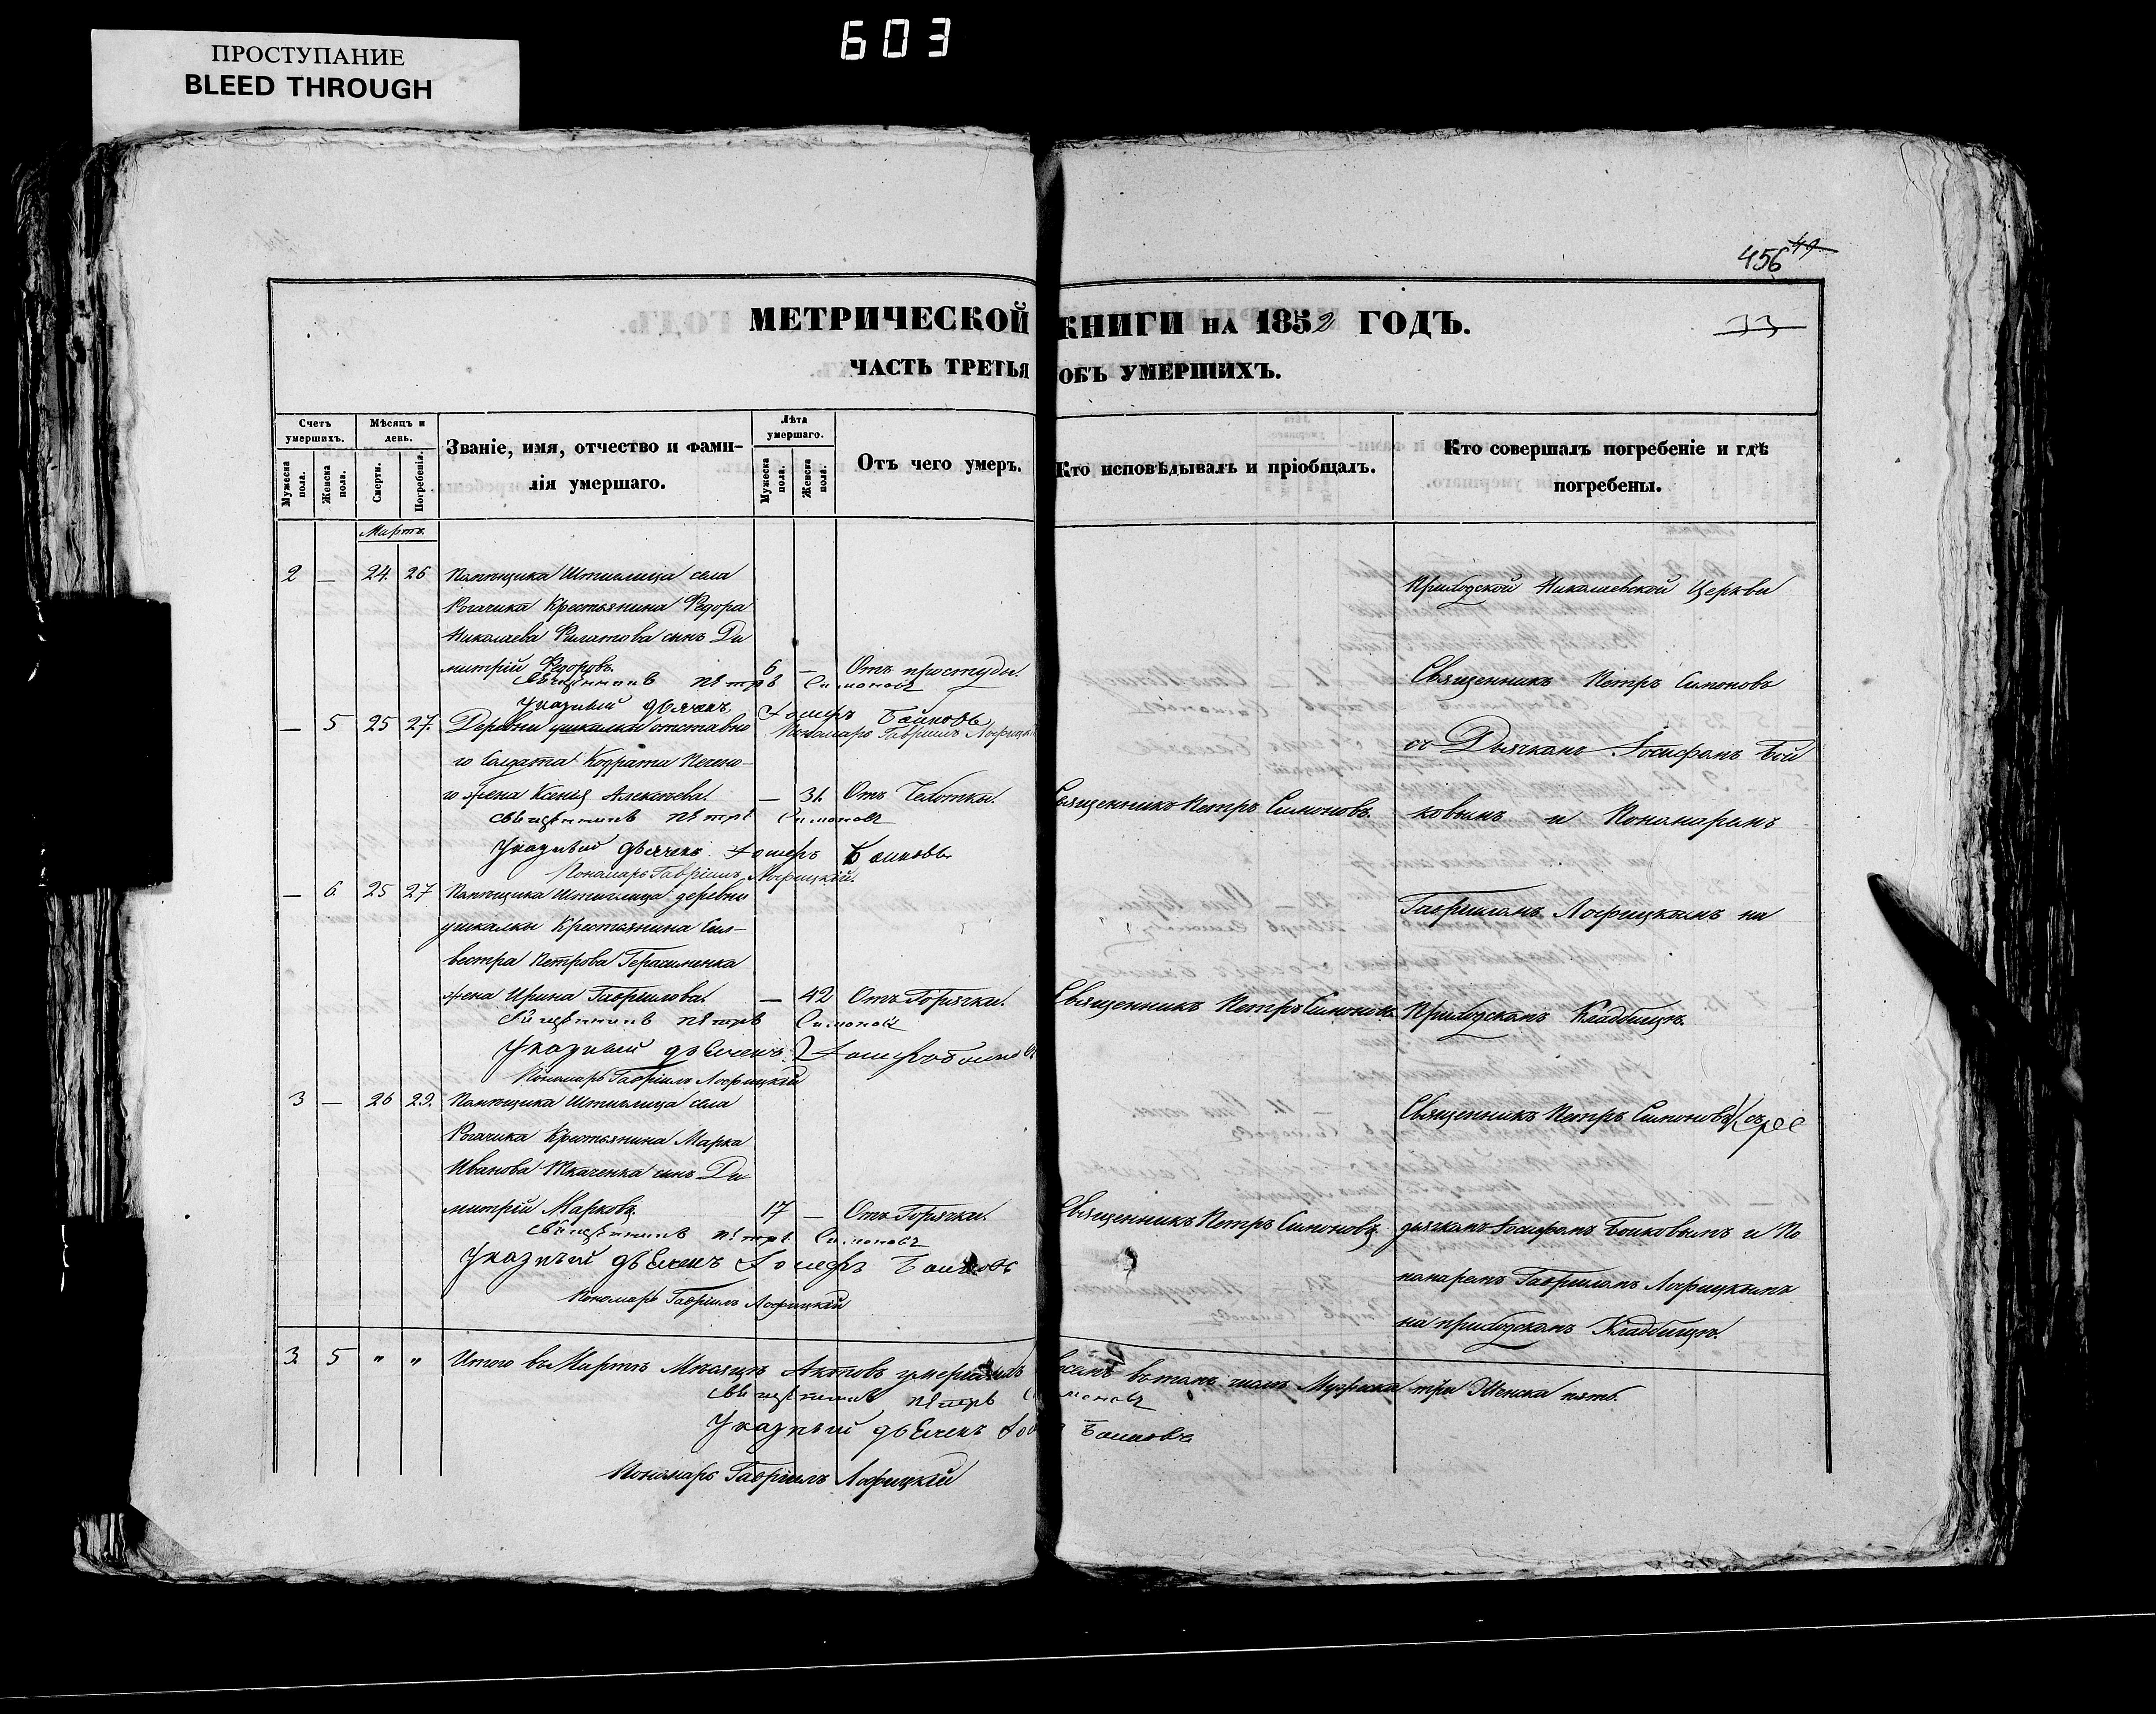 603
ПРОСТУПАНИЕ
BLEED THROUGH
456 49
33
МЕТРИЧЕСКОЙ КНИГИ НА 1852 ГОДЪ.
ЧАСТЬ ТРЕТЬЯ ОБЪ УМЕРШИХЪ.
Счетъ умершихъ.
Мужеска пола.
Женска пола.
Мѣсяцъ и день.
Смерти.
Погребенія.
Званіе, имя, отчество и фами-
лія умершаго.
Лѣта умершаго.
Мужеска пола.
Женска пола.
Отъ чего умеръ.
Кто исповѣдывалъ и пріобщалъ.
Кто совершалъ погребеніе и гдѣ
погребены.
Мартъ
2 — 24. 26 Помѣщика Штиглица села
Рогачика Крестьянина Федора
Николаева Филатова сынъ Ди
митрій Федоровъ. 6 — Отъ простуды.
Священникъ Петръ Симоновъ
Указный дьячекъ Іосифъ Бойковъ
Пономарь Гавріилъ Лофицкій
Приходской Николаевской Церкви
Священникъ Петръ Симоновъ
съ Дьячкомъ Іосифомъ Бой
ковымъ и Пономаремъ
Гавріиломъ Лофицкимъ на
Приходскомъ Кладбищѣ.
— 5 25 27. Деревни ушкалки отставно
го Солдата Кодрата
го жена Ксенія — 31. Отъ Чехотки. Священникъ Петръ Симоновъ.
Священникъ Петръ Симоновъ
Указный дьячекъ Іосифъ Бойковъ
Пономарь Гавріилъ Лофицкій.
— 6 25 27 Помѣщика Штиглица деревни
ушкалки Крестьянина Сил-
вестра Петрова Герасименка
жена Ирина Гаврілова. — 42 Отъ Горячки. Священникъ Петръ Симоновъ
Священникъ Петръ Симоновъ
Указный дьячекъ Іосифъ Бойковъ
Пономарь Гавріилъ Лофицкій
3 — 26 29. Помѣщика Штиглица села
Рогачика Крестьянина Марка
Иванова Ткаченка сынъ Ди
митрій Марковъ. 17 — Отъ Горячки. Священникъ Петръ Симоновъ.
Священникъ Петръ Симоновъ
Указный дьячекъ Іосифъ Бойковъ
Пономарь Гавріилъ Лофицкій
Священникъ Петръ Симоновъ съ
дьячкомъ Іосифомъ Бойковымъ и По
номаремъ Гавріиломъ Лофицкимъ
на приходскомъ Кладбищѣ.
3. 5 " " Итого въ Мартѣ Мѣсяцѣ Актовъ умершихъ восемь въ томъ числѣ Мужеска три Женска пять.
Священникъ Петръ Симоновъ
Указный дьячекъ Бойковъ
Пономарь Гавріилъ Лофицкій